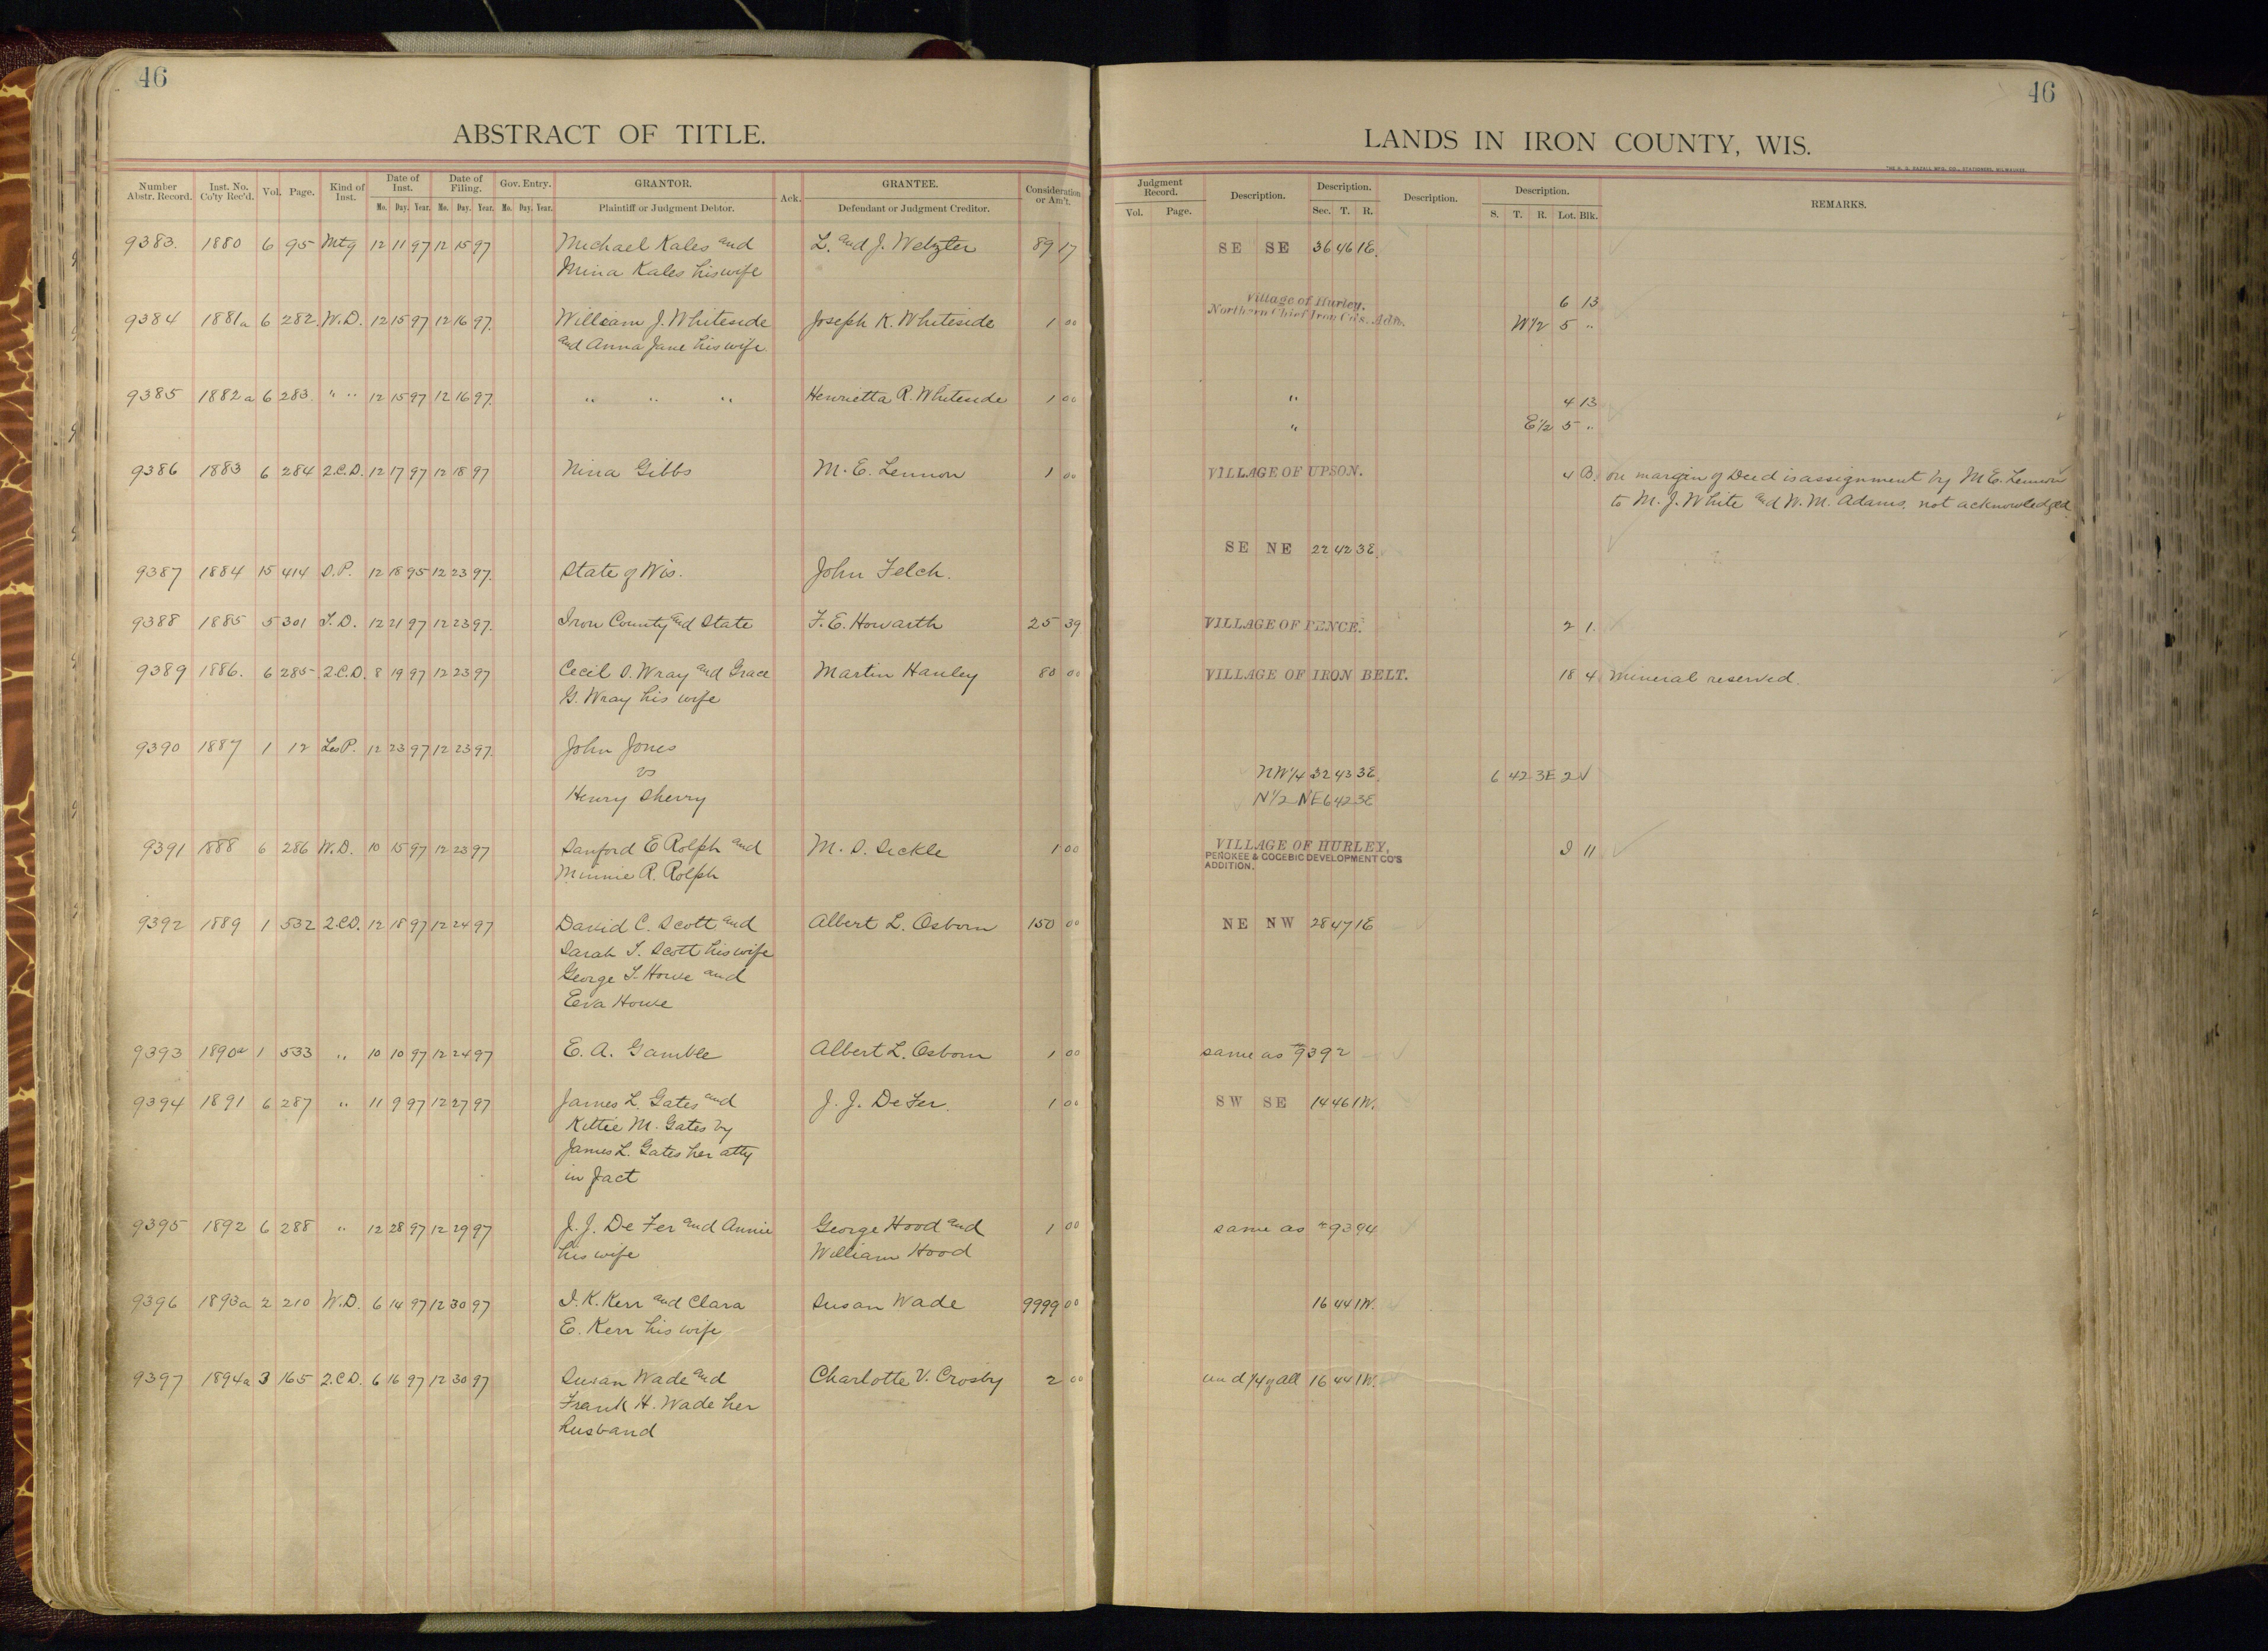 46
ABSTRACT OF TITLE.
Number Abstr. Record. Inst. No. Co'ty Rec'd. Vol. Page. Kind of Inst. Date of Inst. Mo. Day. Year. Date of Filing. Mo. Day. Year. Gov. Entry. Mo. Day. Year. GRANTOR. Plaintiff or Judgment Debtor. Ack. GRANTEE. Defendant or Judgment Creditor. Consideration or Am't.
9383. 1880 6 95 Mtg 12 11 97 12 15 97 Michael Kales and L. and J. Welzter 89 17
Mina Kales his wife
9384 1881a 6 282. W.D. 12 15 97 12 16 97. William J. Whiteside Joseph K. Whiteside 1 00
and Anna Jane his wife
9385 1882a 6 283. " " 12 15 97 12 16 97. " " " Henrietta R. Whiteside 1 00
9386 1883 6 284 2.C.D. 12 17 97 12 18 97 Nina Gibbs M. E. Lennon 1 00
9387 1884 15 414 S.P. 12 18 95 12 23 97. State of Wis. John Felch.
9388 1885 5 301 T.D. 12 21 97 12 23 97. Iron County and State F. E. Howarth 25 39
9389 1886. 6 285 2.C.D. 8 19 97 12 23 97 Cecil D. Wray and Grace Martin Hanley 80 00
G. Wray his wife
9390 1887 1 12 Les P. 12 23 97 12 23 97. John Jones
vs
Henry Sherry
9391 1888 6 286 W.D. 10 15 97 12 23 97 Sanford E Rolph and M. S. Sickle 1 00
Minnie R. Rolph
9392 1889 1 532 2.C.D. 12 18 97 12 24 97 David C. Scott and Albert L. Osborn 150 00
Sarah T. Scott his wife
George T. Howe and
Eva Howe
9393 1890a 1 533 " 10 10 97 12 24 97 E. A. Gamble Albert L. Osborn 1 00
9394 1891 6 287 " 11 9 97 12 27 97 James L. Gates and J. J. DeFer. 1 00
Kittie M. Gates by
James L. Gates her atty
in fact
9395 1892 6 288 " 12 28 97 12 29 97 J. J. De Fer and Annie George Hood and 1 00
his wife William Hood
9396 1893a 2 210 W.D. 6 14 97 12 30 97 I. K. Kerr and Clara Susan Wade 9999 00
E. Kerr his wife
9397 1894a 3 165 2.C.D. 6 16 97 12 30 97 Susan Wade and Charlotte V. Crosby 2 00
Frank H. Wade her
husband
46
LANDS IN IRON COUNTY, WIS.
Judgment Record. Vol. Page. Description. Description. Sec. T. R. Description. Description. S. T. R. Lot. Blk. REMARKS.
SE SE 36 46 1E.
Village of Hurley. 6 13
Northern Chief Iron Co's. Adn. W1/2 5 "
" 4 13
" E1/2 5 "
VILLAGE OF UPSON. 4 B. on margin of Deed is assignment by M E. Lennon
to M. J. White and W. M. Adams, not acknowledged.
SE NE 22 42 3E.
VILLAGE OF PENCE. 2 1.
VILLAGE OF IRON BELT. 18 4 Mineral reserved.
NW1/4 32 43 3E. 6 42 3E 2
N1/2 NE 6 42 3E
VILLAGE OF HURLEY, 9 11
PENOKEE & GOGEBIC DEVELOPMENT CO'S
ADDITION.
NE NW 28 47 1E
same as #9392
SW SE 14 46 1W.
same as #9394
16 44 1W.
und 1/4 of all 16 44 1W.